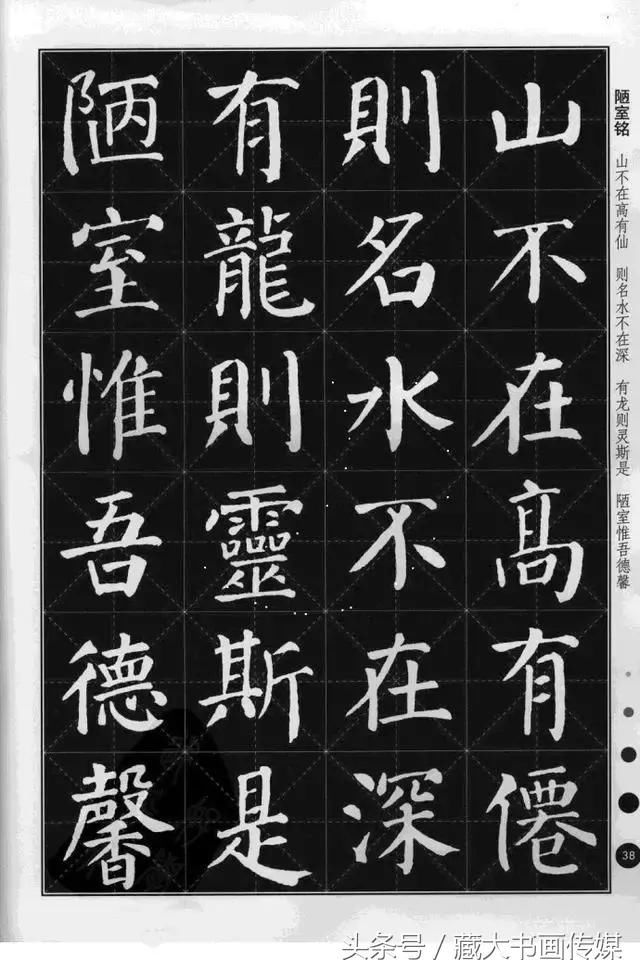 陋室铭 山不在高有仙 则名水不在深 有龙则灵斯是 陋室惟吾德馨
山不在高有僊
則名水不在深
有龍則靈斯是
陋室惟吾德馨
38
头条号/藏大书画传媒